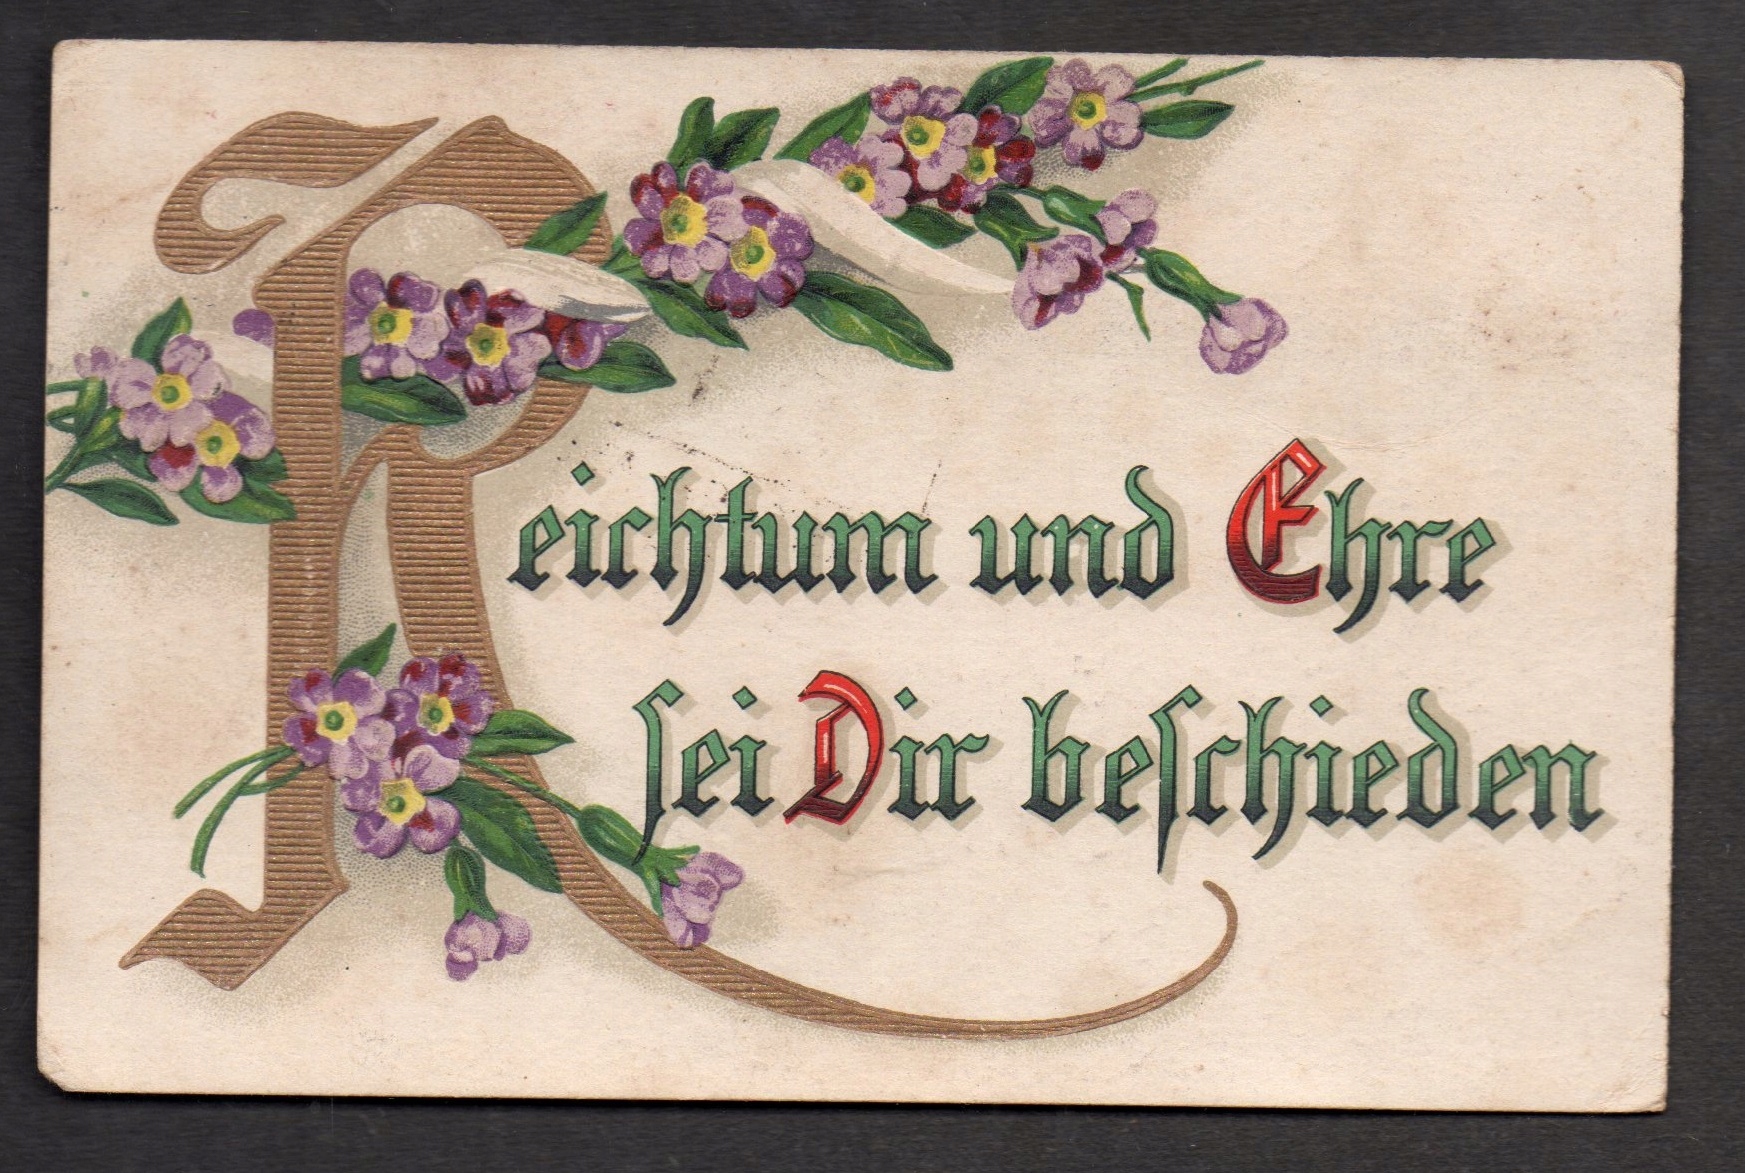 Reichtum und Ehre
sei Dir beschieden